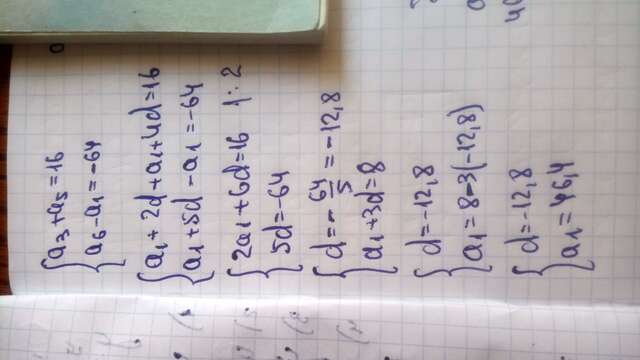 a₃+a₅=16
a₆-a₁=-64
a₁+2d+a₁+4d=16
a₁+5d-a₁=-64
2a₁+6d=16 |:2
5d=-64
d=-64/5=-12,8
a₁+3d=8
d=-12,8
a₁=8-3(-12,8)
d=-12,8
a₁=46,4